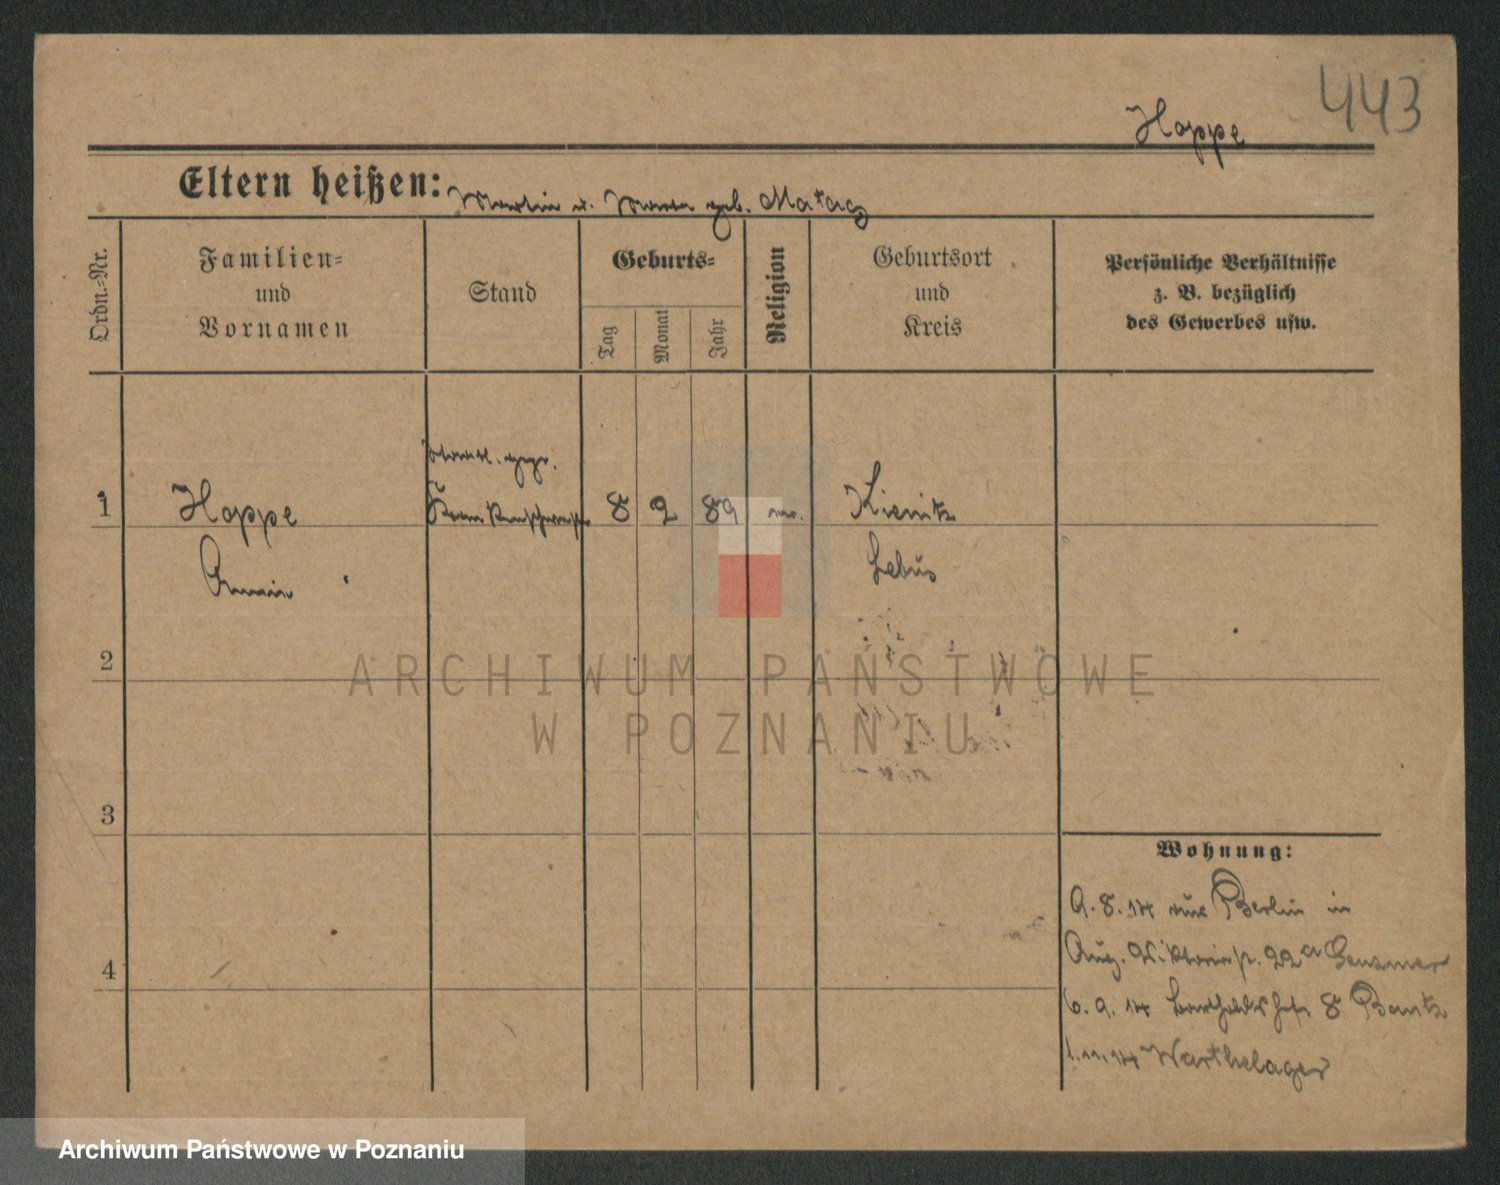 443
Hoppe
Eltern heißen: Martin u. Maria geb.
Ordn.-Nr.
Familien-
und
Vornamen
Stand
Geburts-
Tag
Monat
Jahr
Religion
Geburtsort
und
Kreis
Persönliche Verhältnisse
z. B. bezüglich
des Gewerbes usw.
staatl. gepr.
1 Hoppe Krankenschwester 8 2 89 ev. Kienitz
Lebus
2
3
4
ARCHIWUM PAŃSTWOWE
W POZNANIU
Wohnung:
9. 8. 14 aus Berlin in
Aug. Viktoriastr. 22a Genzmer
6. 9. 14 8 Bantz
1. 11. 14 Warthelager
Archiwum Państwowe w Poznaniu